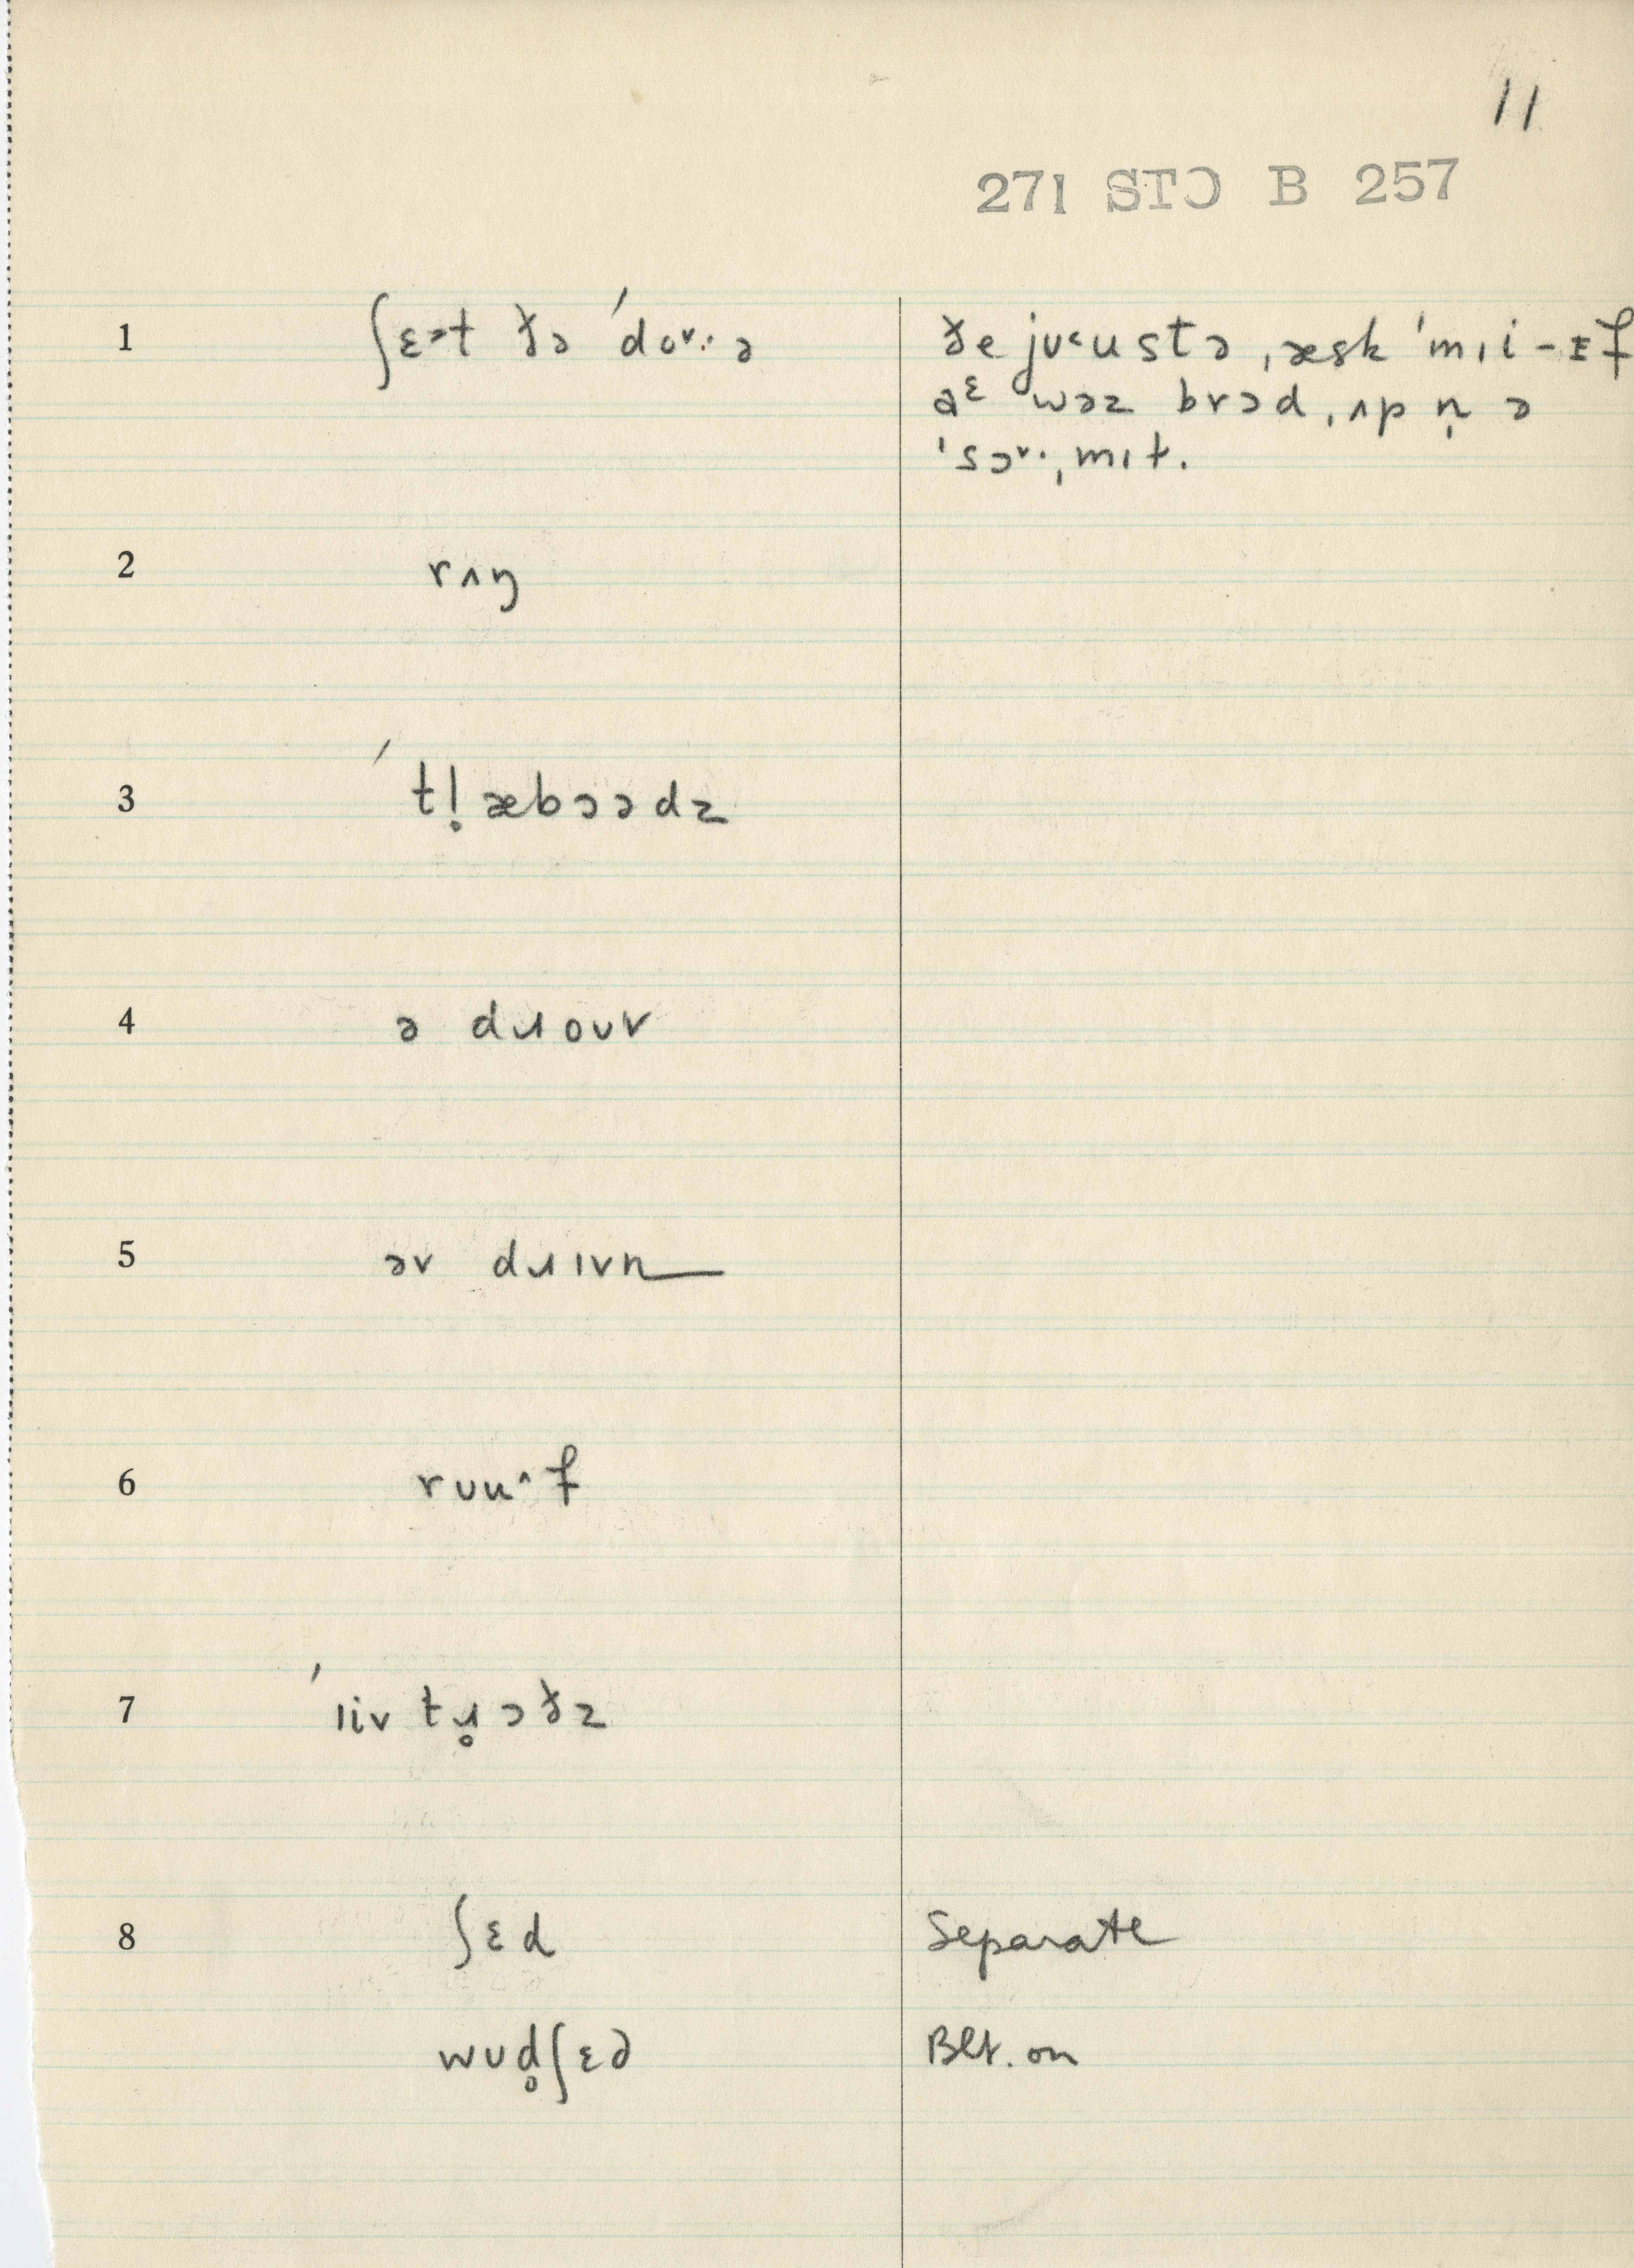 11
271 STƆ B 257
1 ʃɛət ðə ˈdoɤ·ə ðe jʊᶜustə ˌæsk ˈmɪi – ɪf
aᵋ wəz brɔd ˌʌp n̩ ə
ˈsɔɤ· ˌmɪt.
2 rʌŋ
3 ˈtl̥æbɔədz
4 ə dɹoʊv
5 əv dɹɪvn
6 rʊuˆf
7 ˈɪiv tɹ̥ɔðz
8 ʃɛd Separate
wʊd̥ʃɛd Blt. on